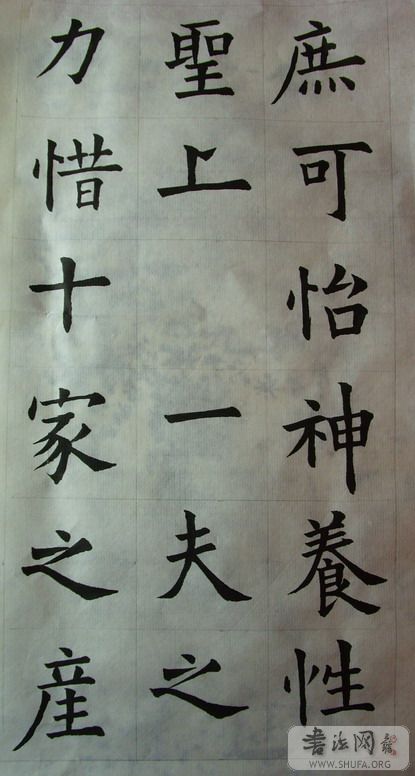 庶可怡神養性
聖上 一夫之
力惜十家之産
書法网
WWW.SHUFA.ORG